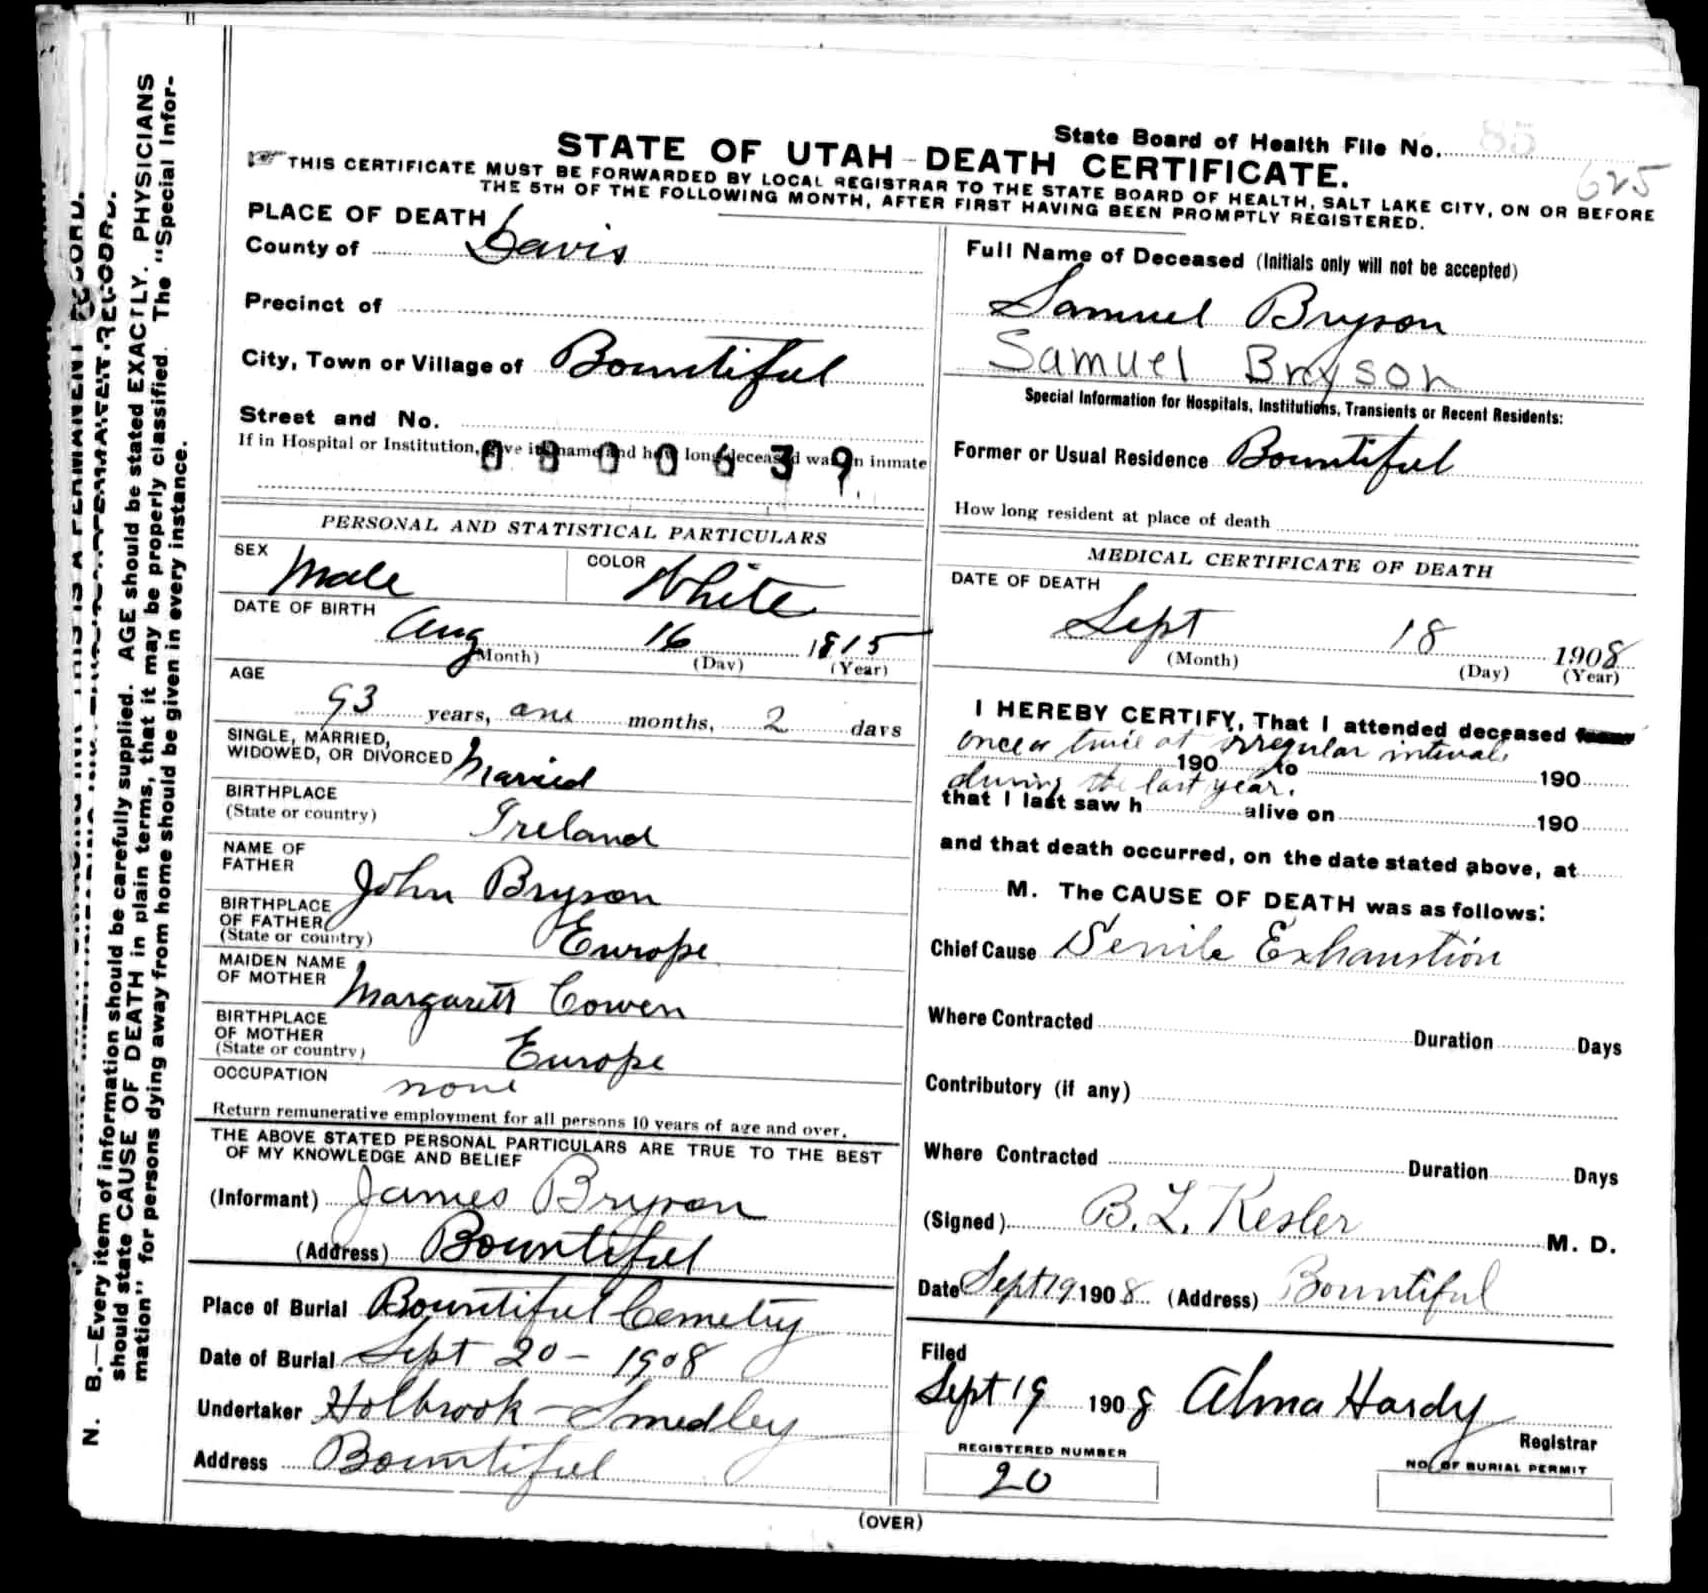 State Board of Health File No. 85
625
STATE OF UTAH - DEATH CERTIFICATE.
THIS CERTIFICATE MUST BE FORWARDED BY LOCAL REGISTRAR TO THE STATE BOARD OF HEALTH, SALT LAKE CITY, ON OR BEFORE
THE 5TH OF THE FOLLOWING MONTH, AFTER FIRST HAVING BEEN PROMPTLY REGISTERED.
PLACE OF DEATH
County of Davis
Precinct of
City, Town or Village of Bountiful
Street and No.
If in Hospital or Institution, give its name and how long deceased was an inmate
0800639
PERSONAL AND STATISTICAL PARTICULARS
SEX Male COLOR White
DATE OF BIRTH
Aug 16 1815
(Month) (Day) (Year)
AGE
93 years, one months, 2 days
SINGLE, MARRIED,
WIDOWED, OR DIVORCED Married
BIRTHPLACE
(State or country) Ireland
NAME OF
FATHER John Bryson
BIRTHPLACE
OF FATHER
(State or country) Europe
MAIDEN NAME
OF MOTHER Margarett Cowen
BIRTHPLACE
OF MOTHER
(State or country) Europe
OCCUPATION none
Return remunerative employment for all persons 10 years of age and over.
THE ABOVE STATED PERSONAL PARTICULARS ARE TRUE TO THE BEST
OF MY KNOWLEDGE AND BELIEF
(Informant) James Bryson
(Address) Bountiful
Place of Burial Bountiful Cemetry
Date of Burial Sept 20 - 1908
Undertaker Holbrook - Smedley
Address Bountiful
Full Name of Deceased (Initials only will not be accepted)
Samuel Bryson
Samuel Bryson
Special Information for Hospitals, Institutions, Transients or Recent Residents:
Former or Usual Residence Bountiful
How long resident at place of death
MEDICAL CERTIFICATE OF DEATH
DATE OF DEATH
Sept 18 1908
(Month) (Day) (Year)
I HEREBY CERTIFY, That I attended deceased
once or twice at irregular intervals
190 to 190
during the last year.
that I last saw h alive on 190
and that death occurred, on the date stated above, at
M. The CAUSE OF DEATH was as follows:
Chief Cause Senile Exhaustion
Where Contracted Duration Days
Contributory (if any)
Where Contracted Duration Days
(Signed) B. L. Kesler M. D.
Date Sept 19 1908 (Address) Bountiful
Filed
Sept 19 1908 Alma Hardy
Registrar
REGISTERED NUMBER
20
NO. OF BURIAL PERMIT
(OVER)
N. B.—Every item of information should be carefully supplied. AGE should be stated EXACTLY. PHYSICIANS
should state CAUSE OF DEATH in plain terms, that it may be properly classified. The "Special Infor-
mation" for persons dying away from home should be given in every instance.